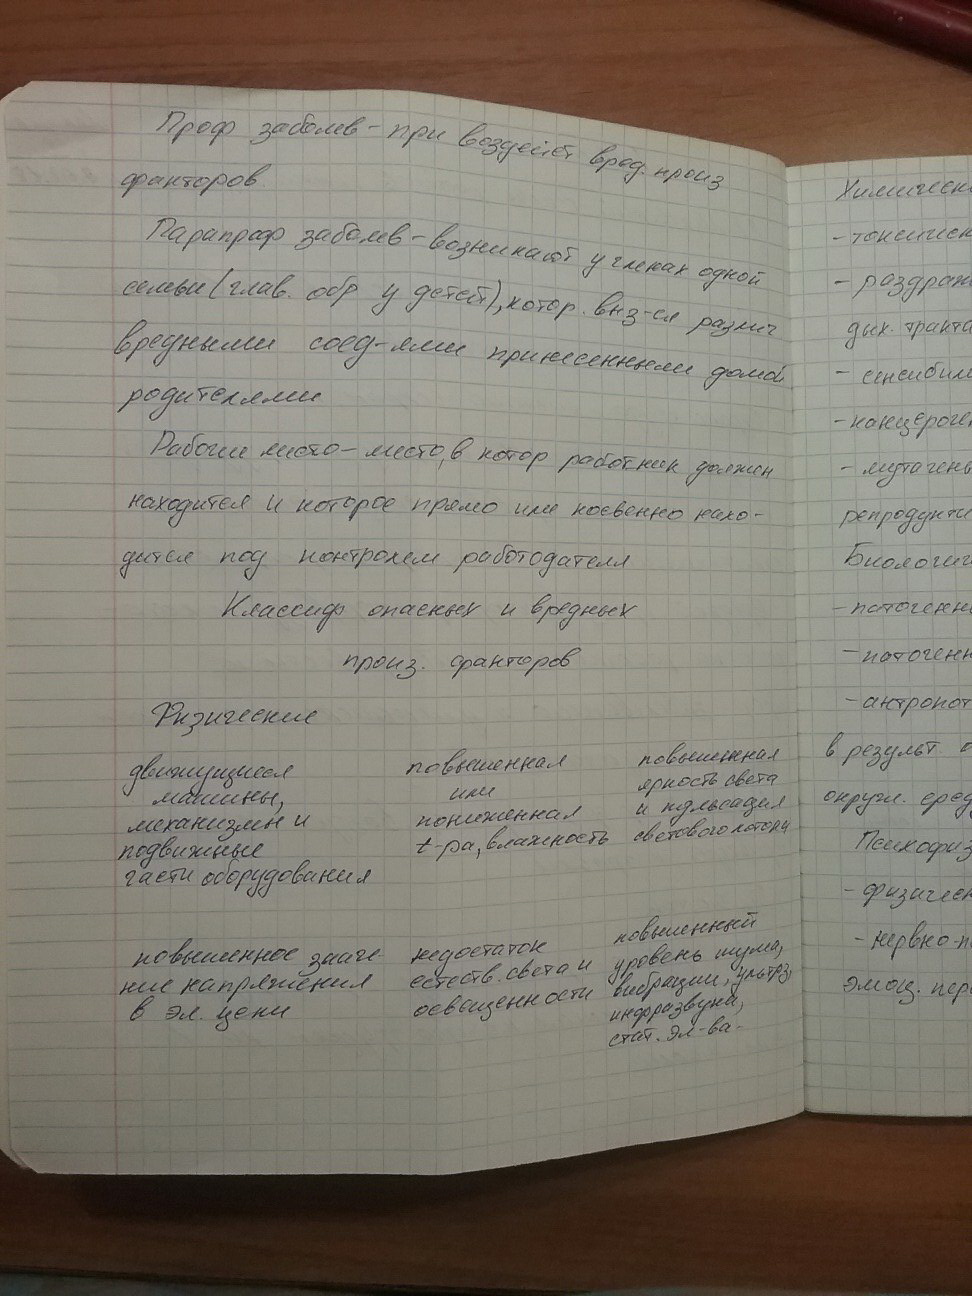 Проф заболев - при воздейст вред. произ
факторов
Парапроф заболев - возникают у членах одной
семьи (глав. обр у детей), котор. выз-ся различ
вредными соед-ями принесенными домой
родителями
Рабочии место - место, в котор работник должен
находится и которое прямо или косвенно нахо-
дится под контролем работодателя
Классиф опасных и вредных
произ. факторов
Физические
движущиеся
машины,
механизмы и
подвижные
части оборудования
повышенная
или
пониженная
t-ра, влажность
повышенная
яркость света
и пульсация
светового потока
повышенное значе-
ние напряжения
в эл. цепи
недостаток
естеств. света и
освещенности
повышенный
уровень шума,
вибрации, ультрз,
инфразвука,
стат. эл-ва.
Химическ
- токсичес
- раздраж
дых. тракта
- сенсибил
- канцероген
- мутагень
репродукти
Биологич
- патогенн
- патогенн
- антропот
в результ. о
окруж. сред
Психофиз
- физическ
- нервно-п
эмоц. пер